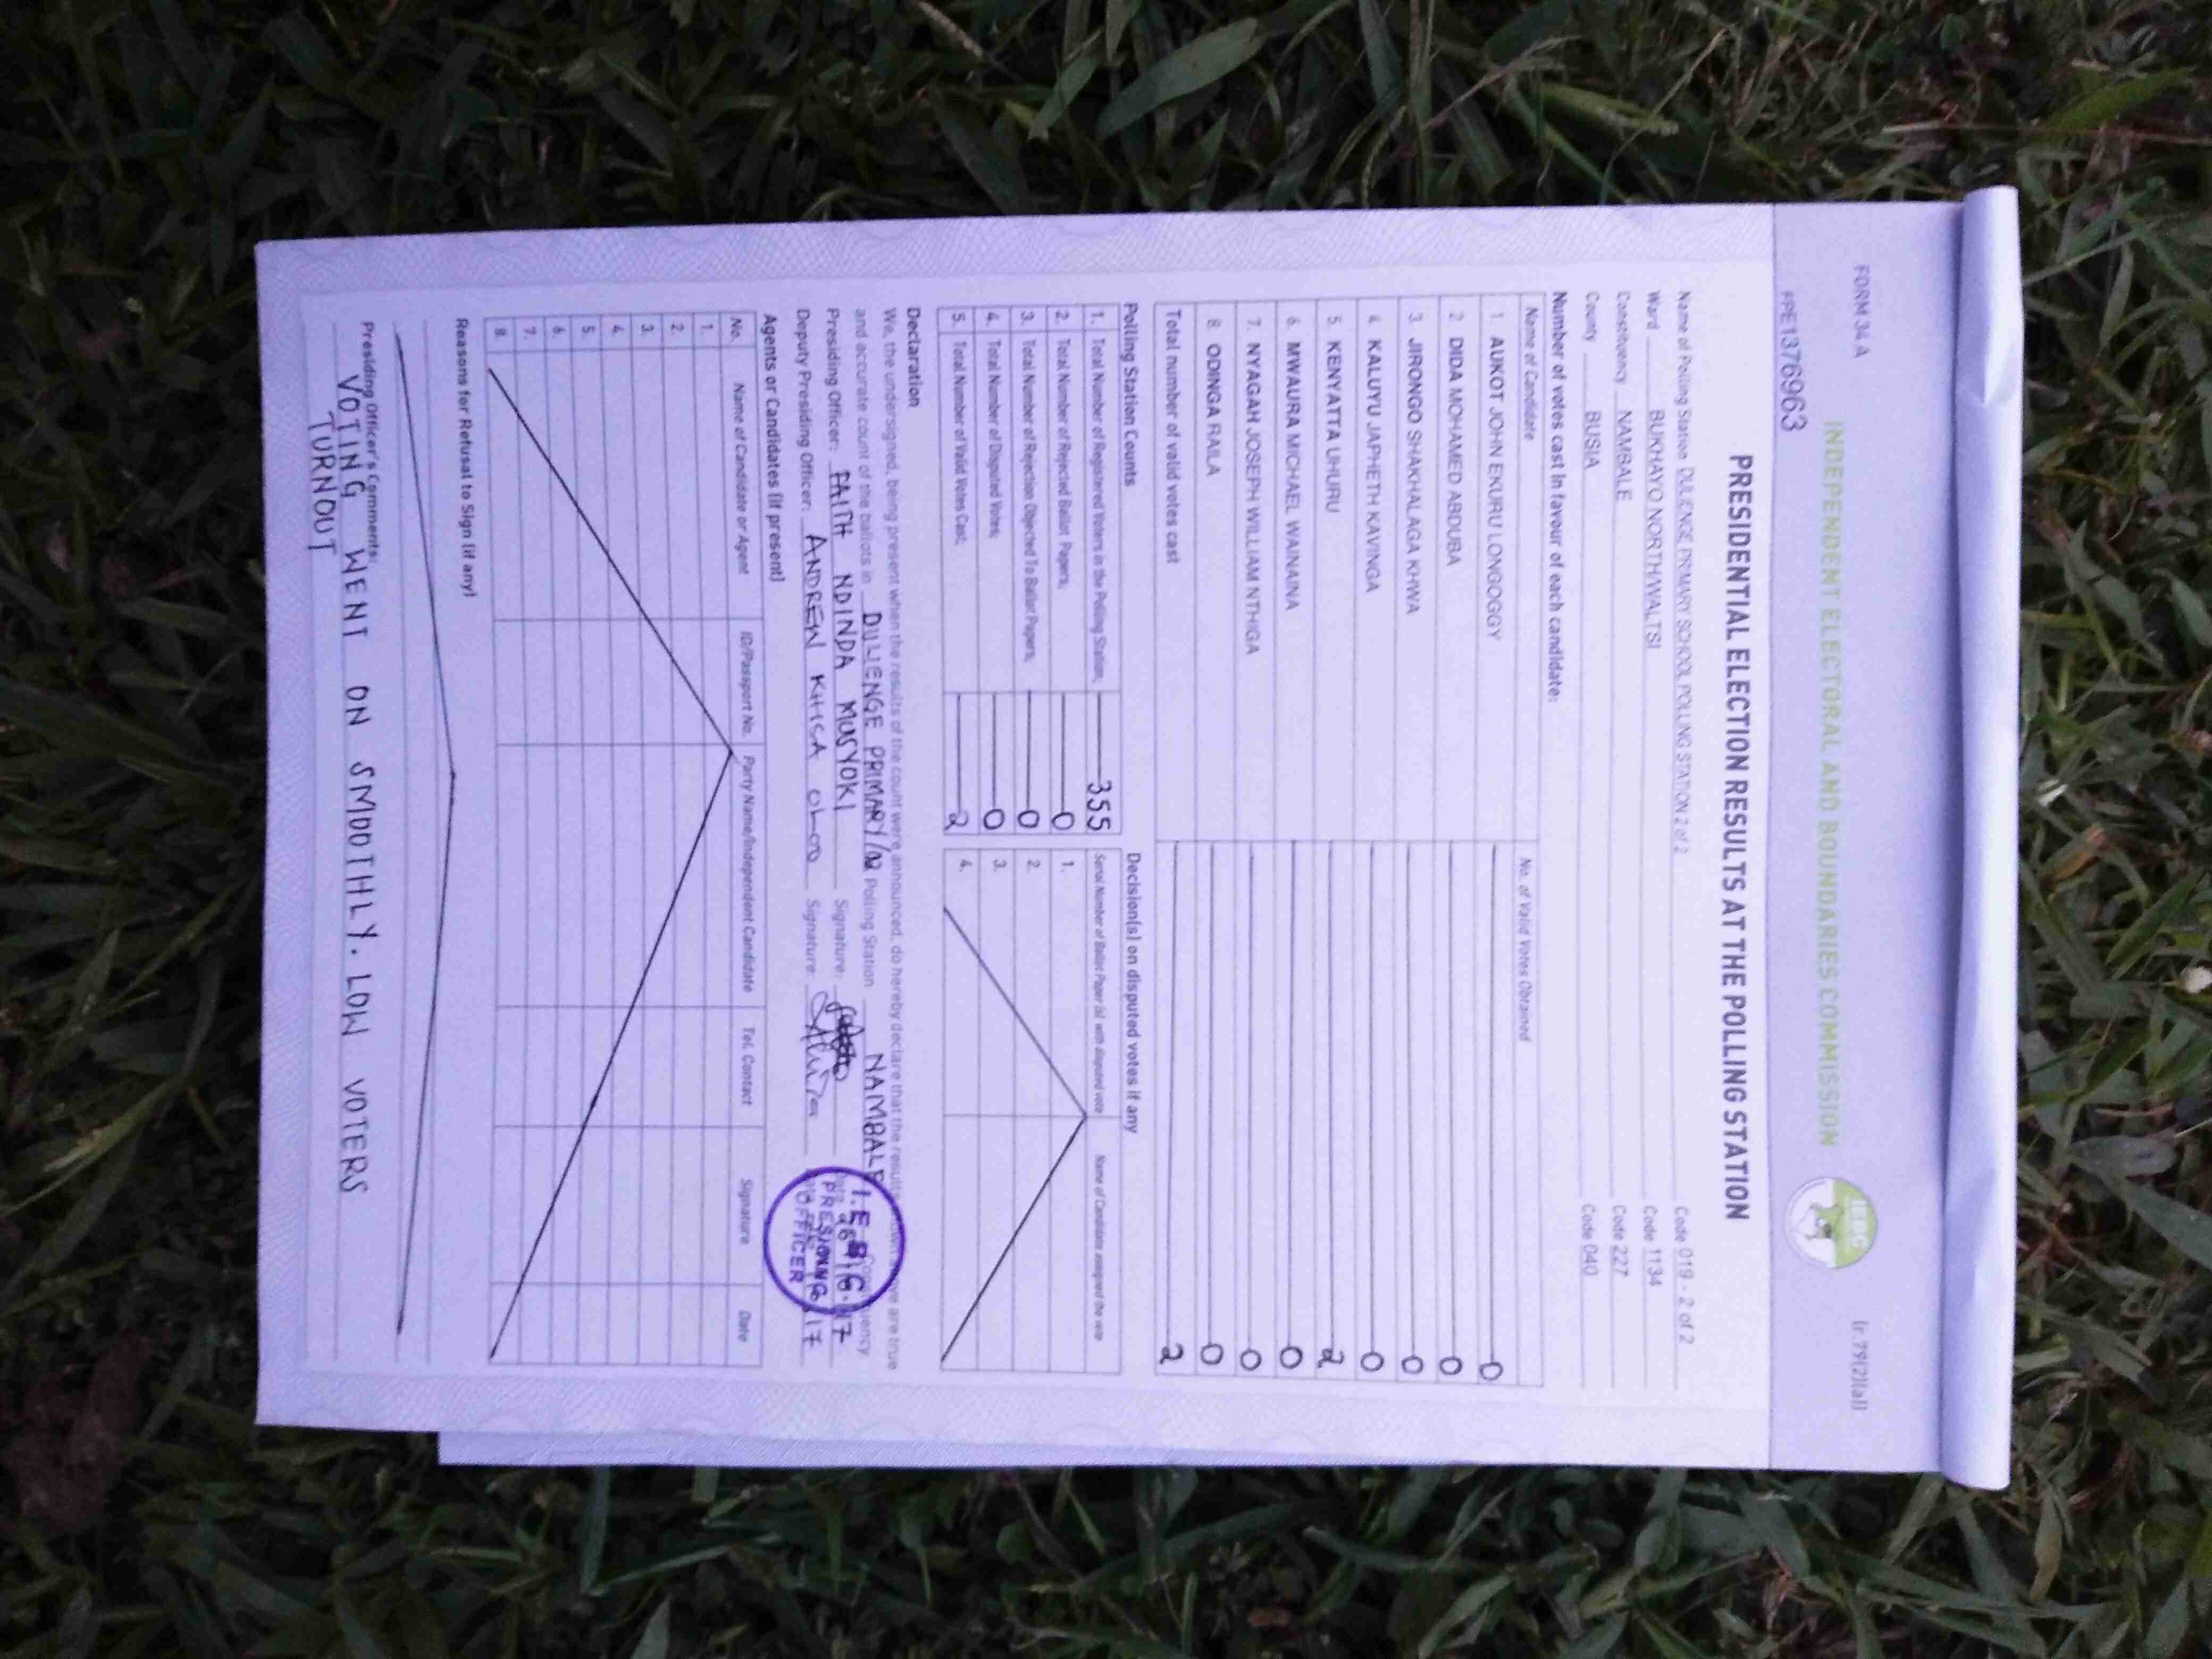 FORM 34 A
(r.79(2)(a))
INDEPENDENT ELECTORAL AND BOUNDARIES COMMISSION
IEBC
PPE1376963
PRESIDENTIAL ELECTION RESULTS AT THE POLLING STATION
Name of Polling Station DULIENGE PRIMARY SCHOOL POLLING STATION 2 of 2 Code 019 - 2 of 2
Ward BUKHAYO NORTH/WALTSI Code 1134
Constituency NAMBALE Code 227
County BUSIA Code 040
Number of votes cast in favour of each candidate:
Name of Candidate No. of Valid Votes Obtained
1. AUKOT JOHN EKURU LONGOGGY 0
2. DIDA MOHAMED ABDUBA 0
3. JIRONGO SHAKHALAGA KHWA 0
4. KALUYU JAPHETH KAVINGA 0
5. KENYATTA UHURU 2
6. MWAURA MICHAEL WAINAINA 0
7. NYAGAH JOSEPH WILLIAM NTHIGA 0
8. ODINGA RAILA 0
Total number of valid votes cast 2
Polling Station Counts
1. Total Number of Registered Voters in the Polling Station; 355
2. Total Number of Rejected Ballot Papers; 0
3. Total Number of Rejection Objected To Ballot Papers; 0
4. Total Number of Disputed Votes; 0
5. Total Number of Valid Votes Cast; 2
Decision(s) on disputed votes if any
Serial Number of Ballot Paper (s) with disputed vote Name of Candidate assigned the vote
1.
2.
3.
4.
Declaration
We, the undersigned, being present when the results of the count were announced, do hereby declare that the results shown above are true
and accurate count of the ballots in DULIENGE PRIMARY/02 Polling Station NAMBALE Constituency
Presiding Officer: FAITH NDINDA MUSYOKI Signature
Deputy Presiding Officer: ANDREW Signature
I.E.B.C
PRESIDING
OFFICER
Agents or Candidates (if present)
No. Name of Candidate or Agent ID/Passport No. Party Name/Independent Candidate Tel. Contact Signature Date
1.
2.
3.
4.
5.
6.
7.
8.
Reasons for Refusal to Sign (if any)
Presiding Officer's Comments:
VOTING WENT ON SMOOTHLY. LOW VOTERS
TURNOUT